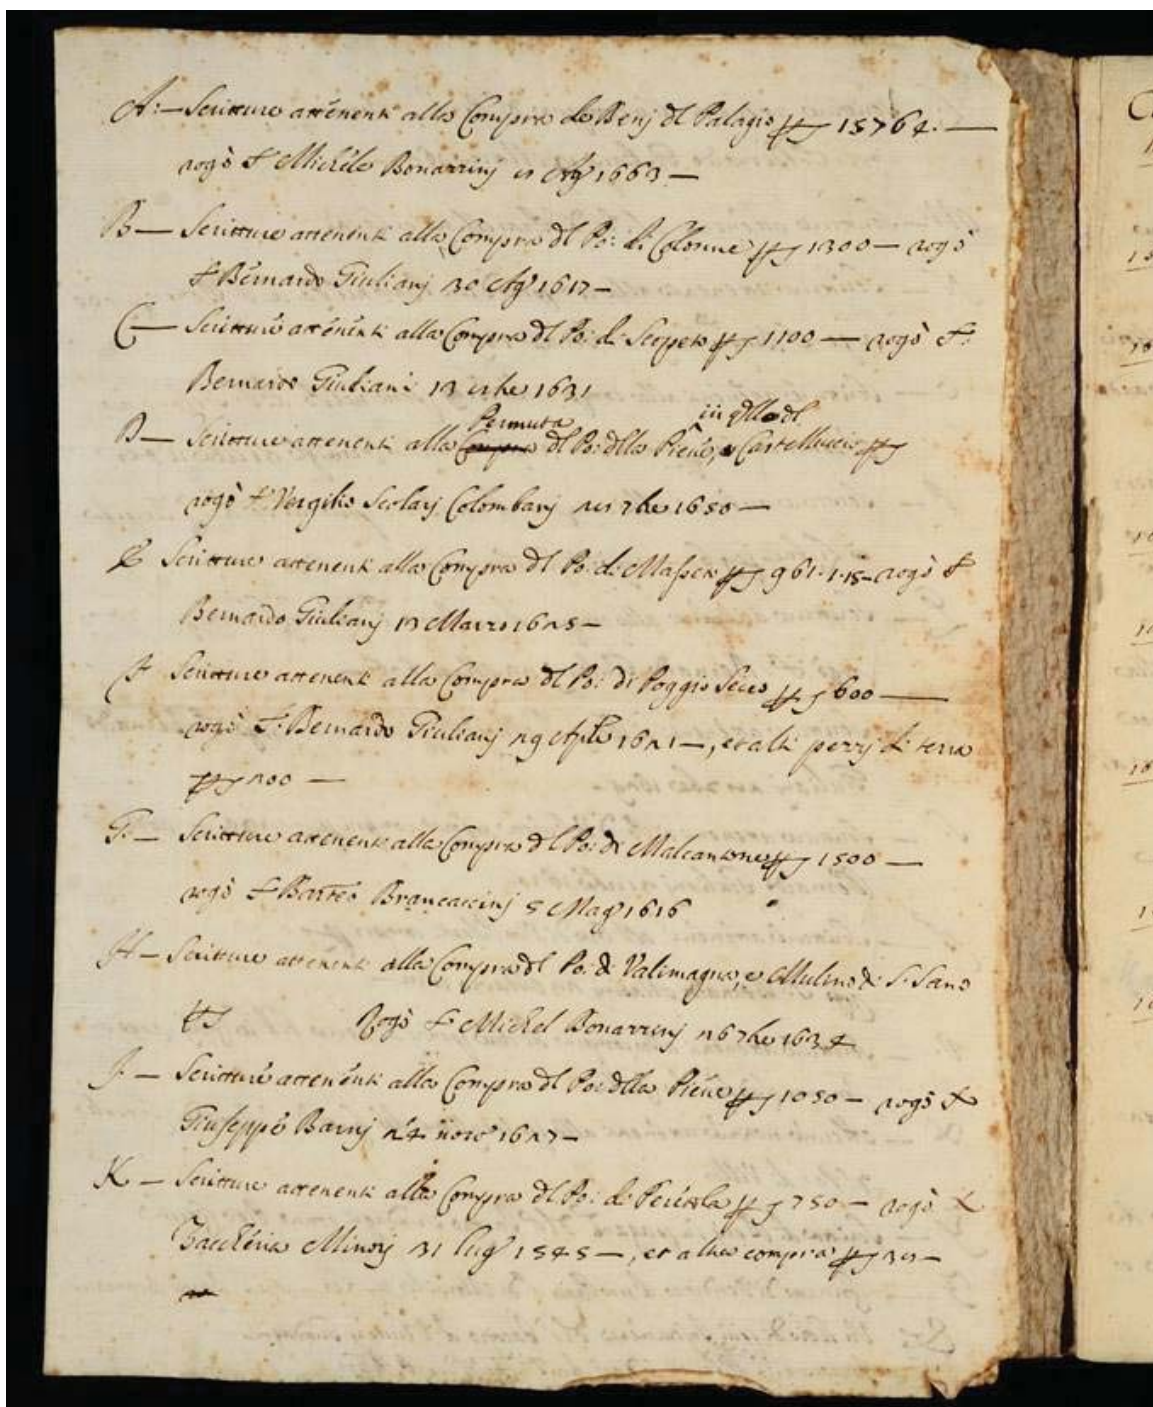 A:— Scritture attenenti alla Compra de Benj dl Palagio 15764.—
rogò Michele Bonazzinj Ag.º 1663 —
B — Scritture attenenti alla Compra dl Po: di Colonne 1300 — rogò
Bernardo Giulianj 30 Ag.º 1617 —
C — Scritture attenenti alla Compra dl Po: di Scopeto 1100 — rogò
Bernardo Giuliani 1631
Permuta in qllo dl
D — Scritture attenenti alla dl Po: dlla Pieve, Castelluccio
rogò Vergilio Scolarj Colombanj 7bre 1650 —
E Scritture attenenti alla Compra dl Po: di Masseto 961.1.15 — rogò
Bernardo Giulianj Marzo 1625 —
F Scritture attenenti alla Compra dl Po: di Poggio Secco 600 —
rogò Bernardo Giulianj 29 Aple 1621 —, et alti pezzj di terra
200 —
G.— Scritture attenenti alla Compra dl Po: di Malcantone 1500 —
rogò Barteo Brancaccinj 5 Mag.º 1616
H — Scritture attenenti alla Compra dl Po: di Valimagna, e Mulino di S. Sano
Rogò Michel Bonazzinj 26 7bre 1634
J.— Scritture attenenti alla Compra dl Po: dlla Pieve 1050 — rogò
Giuseppe Barnj 24 nove 1627 —
K — Scritture attenenti alla Compra dl Po: di Peretola 750 — rogò
Zaccheria Minorj 31 lug.º 1545 —, et altra compra